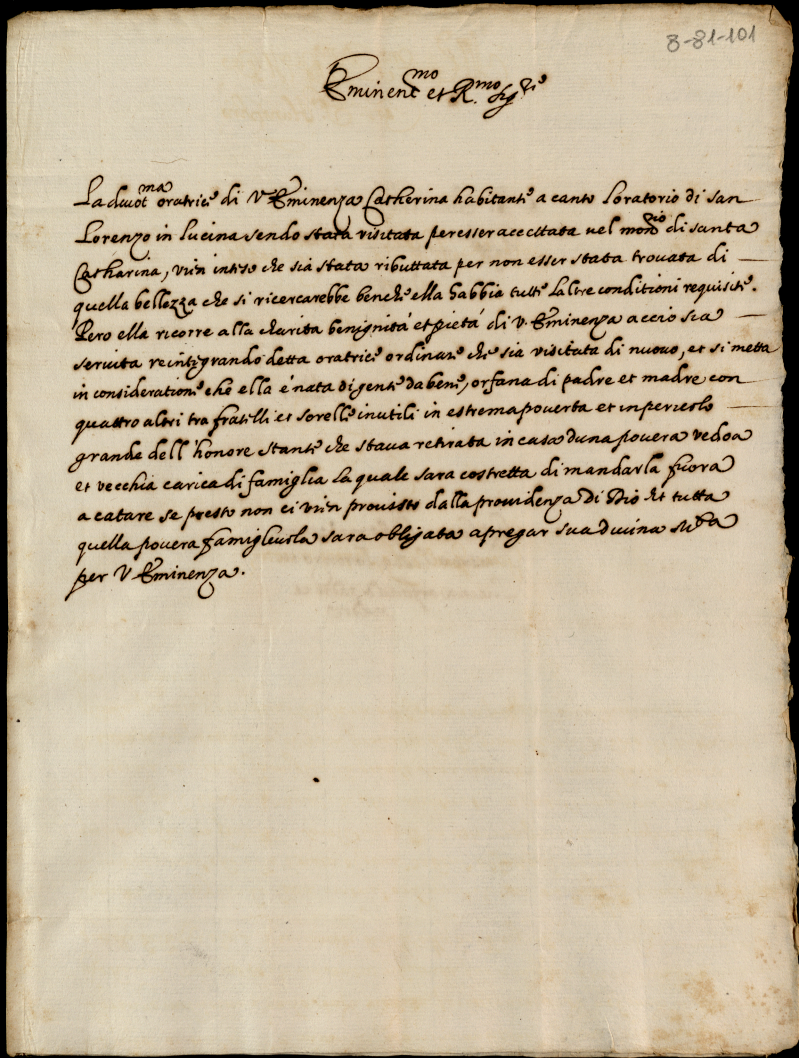 8-81-101
Eminent.mo et R.mo Sig.re
La devot.ma oratrice di V Eminenza Catherina habitante a canto l'oratorio di san
Lorenzo in lucina sendo stata visitata per esser accettata nel mon.rio di santa
Catharina, vien inteso che sia stata ributtata per non esser stata trovata di
quella bellezza che si ricercarebbe benche ella habbia tutte l'altre conditioni requisite.
Pero ella ricorre alla charita benignitá et pietá di V. Eminenza accio sia
servita reintegrando detta oratrice ordinare che sia visitata di nuovo, et si metta
in consideratione che ella é nata di gente da bene, orfana di padre et madre con
quattro altri tra fratelli et sorelle inutili in estrema poverta et in pericolo
grande dell'honore stante che stava retirata in casa d'una povera vedoa
et vecchia carica di famiglia la quale sara costretta di mandarla fuora
a catare se presto non ci vien provisto dalla providenza di Dio et tutta
quella povera famigliuola sara obligata a pregar sua divina M.ta
per V Eminenza.